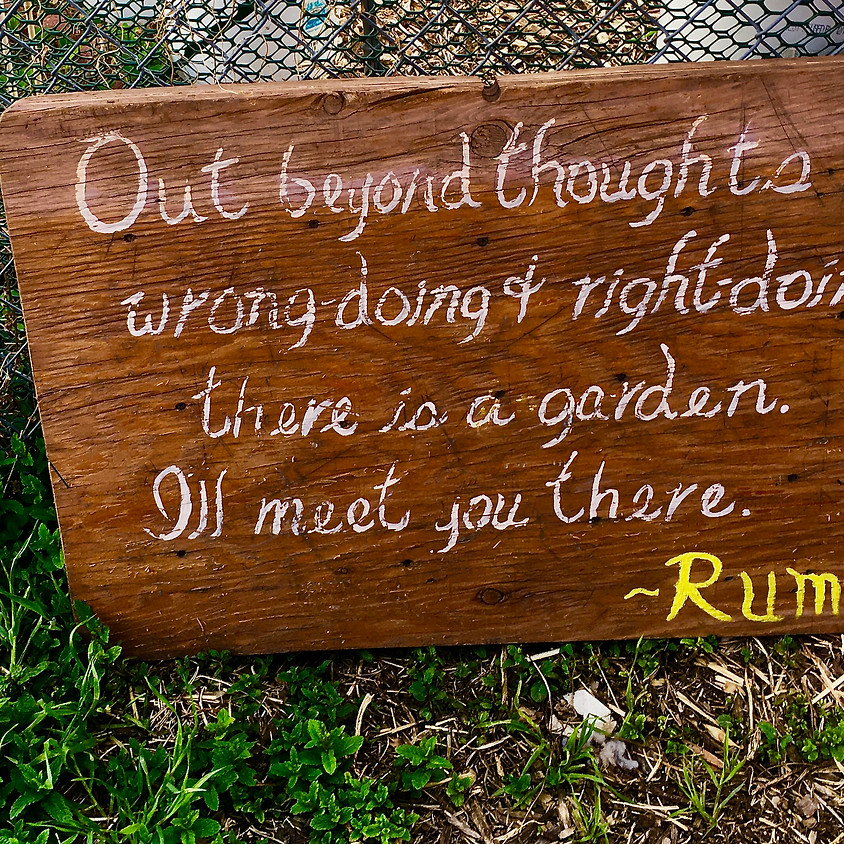 Out beyond thoughts
wrong-doing & right-doin
there is a garden.
I'll meet you there.
~Rum